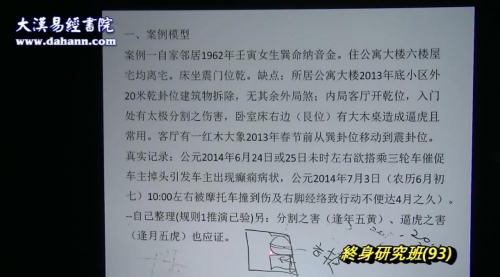 大漢易經書院
www.dahann.com
一、案例模型
案例一自家邻居1962年壬寅女生巽命纳音金。住公寓大楼六楼屋
宅均离宅。床坐震门位乾。缺点：所居公寓大楼2013年底小区外
20米乾卦位建筑物拆除，无其余外局煞；内局客厅开乾位，入门
处有太极分割之伤害，卧室床右边（艮位）有大木桌造成逼虎且
常用。客厅有一红木大象2013年春节前从巽卦位移动到震卦位。
真实记录：公元2014年6月24日或25日未时左右欲搭乘三轮车催促
车主掉头引发车主出现癫痫病状，公元2014年7月3日（农历6月初
七）10:00左右被摩托车撞到伤及右脚经络致行动不便达4月之久）。
--自己整理(规则1推演已验)另：分割之害（逢年五黄）、逼虎之害
（逢月五虎）也应证。
終身研究班(93)